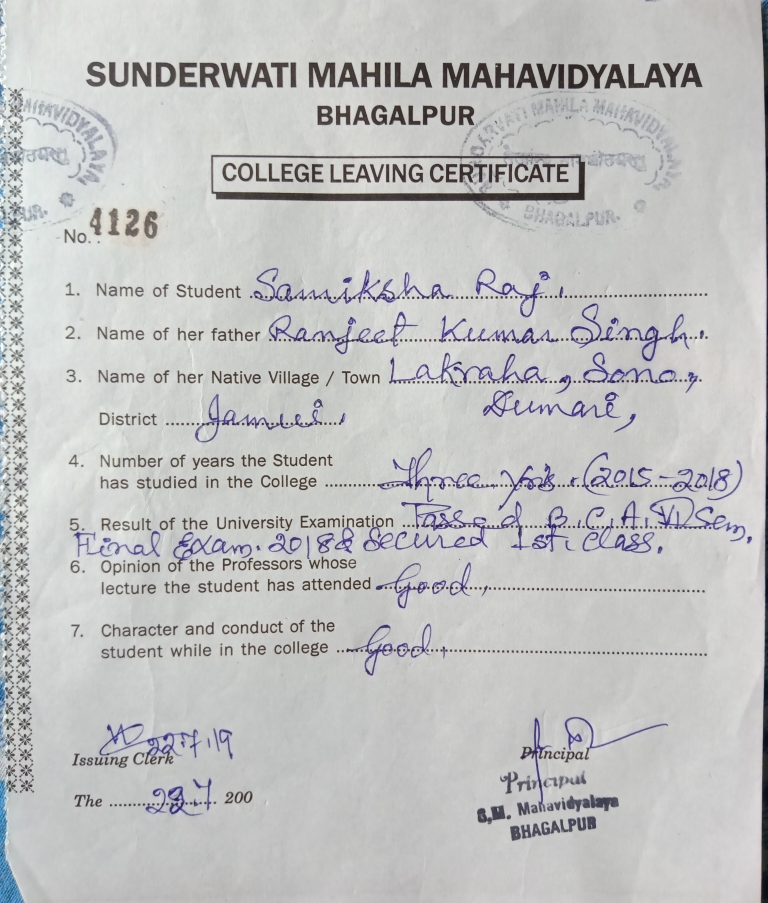 SUNDERWATI MAHILA MAHAVIDYALAYA
BHAGALPUR
COLLEGE LEAVING CERTIFICATE
BHAGALPUR.
No. 4126
1. Name of Student Samiksha Raj.
2. Name of her father Ranjeet Kumar Singh.
3. Name of her Native Village / Town Lakraha, Sono,
District Jamui, Dumari,
4. Number of years the Student
has studied in the College Three yrs. (2015-2018)
5. Result of the University Examination Passed B.C.A. VI Sem.
Final Exam. 2018 & Secured 1st. Class.
6. Opinion of the Professors whose
lecture the student has attended Good,
7. Character and conduct of the
student while in the college Good,
22.7.19
Issuing Clerk
Principal
Principal
The 22.7 200
S.M. Mahavidyalaya
BHAGALPUR